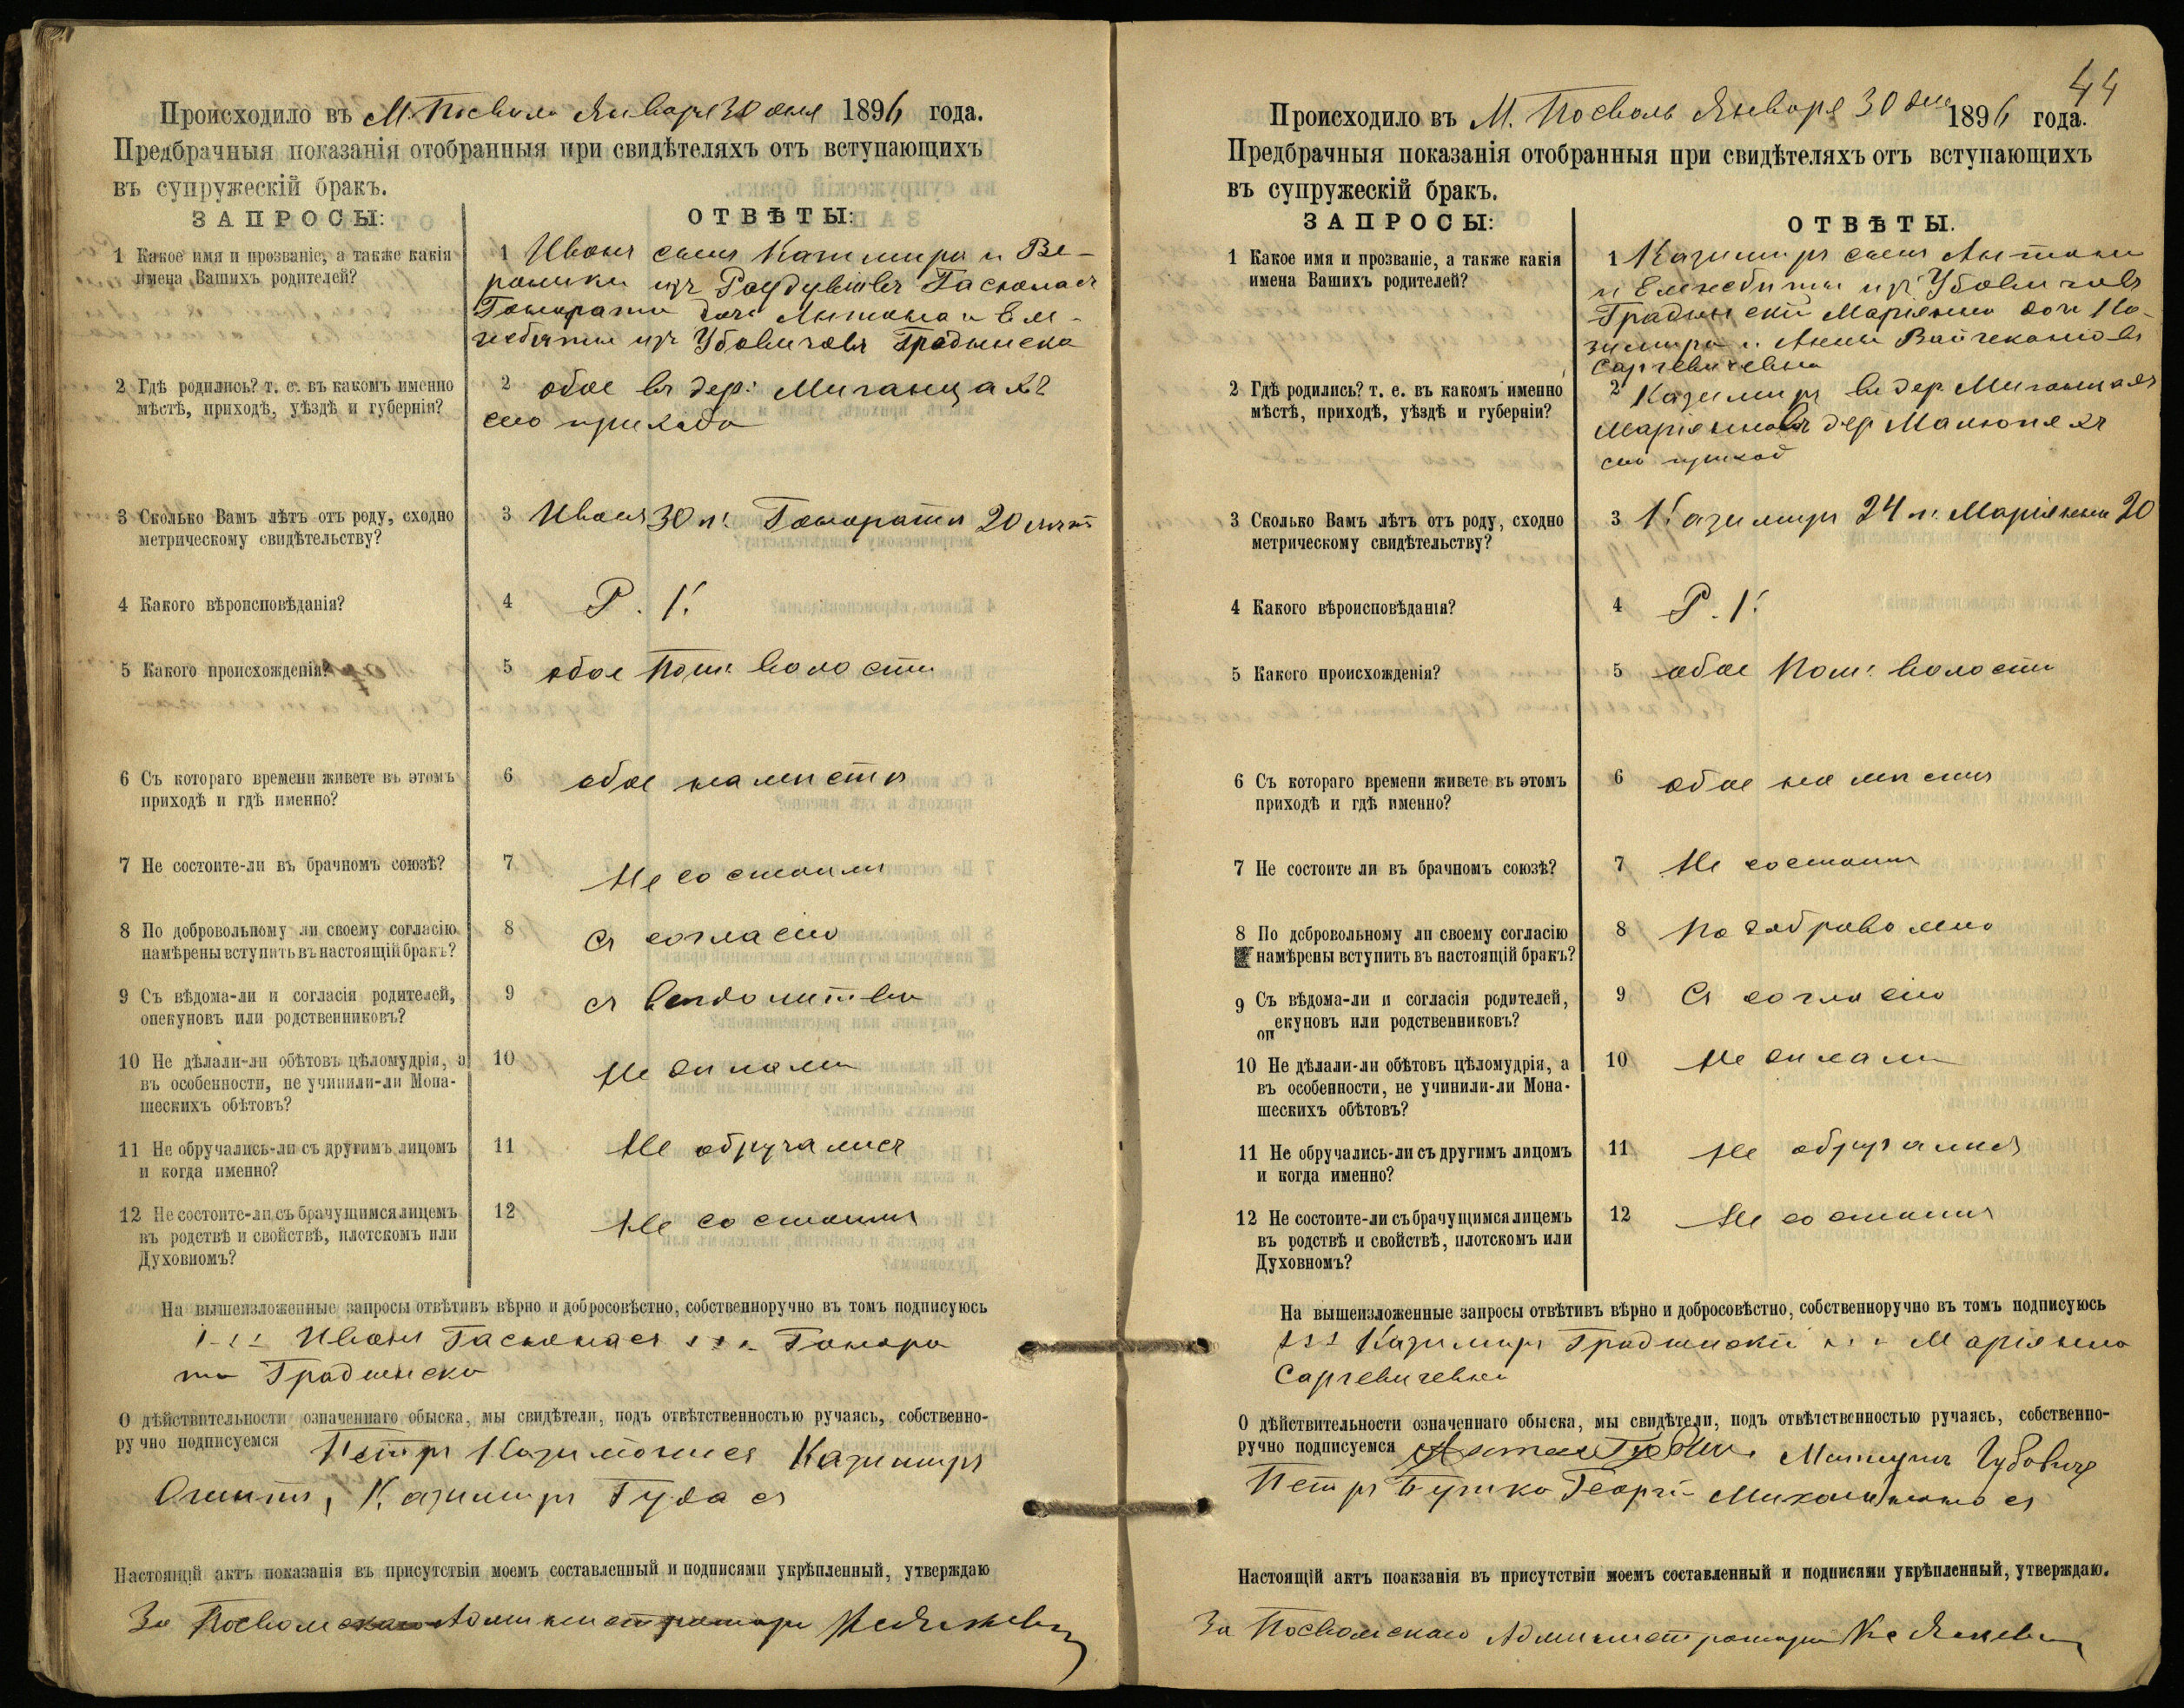 Происходило въ М. Посволь Января 30 дня 1896 года.
Предбрачныя показанія отобранныя при свидѣтеляхъ отъ вступающихъ
въ супружескій бракъ.
ЗАПРОСЫ:
ОТВѢТЫ:
1 Какое имя и прозваніе, а также какія
имена Вашихъ родителей?
1 Иванъ сынъ Казимира и Ве-
роники изъ
Гонората дочь Антона и Ели-
забеты изъ Убовичовъ Градинска
2 Гдѣ родились? т. е. въ какомъ именно
мѣстѣ, приходѣ, уѣздѣ и губерніи?
2 обое въ дер. Миганцахъ
сего прихода
3 Сколько Вамъ лѣтъ отъ роду, сходно
метрическому свидѣтельству?
3 Иванъ 30 л. Гонората 20 лѣтъ
4 Какого вѣроисповѣданія?
4 Р. К.
5 Какого происхожденія?
5 обое волости
6 Съ котораго времени живете въ этомъ
приходѣ и гдѣ именно?
6 обое на мѣстѣ
7 Не состоите-ли въ брачномъ союзѣ?
7 Не состоимъ
8 По добровольному ли своему согласію
намѣрены вступить въ настоящій бракъ?
8 Съ согласію
9 Съ вѣдома-ли и согласія родителей,
опекуновъ или родственниковъ?
9 съ
10 Не дѣлали-ли обѣтовъ цѣломудрія, а
въ особенности, не учинили-ли Мона-
шескихъ обѣтовъ?
10 Не дѣлали
11 Не обручались-ли съ другимъ лицомъ
и когда именно?
11 Не обручались
12 Не состоите-ли съ брачущимся лицемъ
въ родствѣ и свойствѣ, плотскомъ или
Духовномъ?
12 Не состоимъ
На вышеизложенные запросы отвѣтивъ вѣрно и добросовѣстно, собственноручно въ томъ подписуюсь
Иванъ Гасюнасъ Гонора
та Градинска
О дѣйствительности означеннаго обыска, мы свидѣтели, подъ отвѣтственностью ручаясь, собственно-
ручно подписуемся Петръ Казимъ
Казимиръ
Казимиръ Гудасъ
Настоящій актъ показанія въ присутствіи моемъ составленный и подписями укрѣпленный, утверждаю
За Посвольскаго Администратора
44
Происходило въ М. Посволь Января 30 дня 1896 года.
Предбрачныя показанія отобранныя при свидѣтеляхъ отъ вступающихъ
въ супружескій бракъ.
ЗАПРОСЫ:
ОТВѢТЫ.
1 Какое имя и прозваніе, а также какія
имена Вашихъ родителей?
1 Казимиръ сынъ Антона
и Елизабеты изъ Убовичовъ
Градинскій Маріянна дочь Ка-
зимира и Анны
Саргевичевна
2 Гдѣ родились? т. е. въ какомъ именно
мѣстѣ, приходѣ, уѣздѣ и губерніи?
2 Казимиръ въ дер. Миганцахъ
Маріянна въ дер Манюпяхъ
сего приход
3 Сколько Вамъ лѣтъ отъ роду, сходно
метрическому свидѣтельству?
3 Казимиръ 24 л. Маріянна 20
4 Какого вѣроисповѣданія?
4 Р. К.
5 Какого происхожденія?
5 обое волости
6 Съ котораго времени живете въ этомъ
приходѣ и гдѣ именно?
6 обое на мѣстѣ
7 Не состоите ли въ брачномъ союзѣ?
7 Не состоимъ
8 По добровольному ли своему согласію
намѣрены вступить въ настоящій бракъ?
8 По
9 Съ вѣдома-ли и согласія родителей,
опекуновъ или родственниковъ?
9 Съ согласію
10 Не дѣлали-ли обѣтовъ цѣломудрія, а
въ особенности, не учинили-ли Мона-
шескихъ обѣтовъ?
10 Не дѣлали
11 Не обручались-ли съ другимъ лицомъ
и когда именно?
11 Не обручались
12 Не состоите-ли съ брачущимся лицемъ
въ родствѣ и свойствѣ, плотскомъ или
Духовномъ?
12 Не состоимъ
На вышеизложенные запросы отвѣтивъ вѣрно и добросовѣстно, собственноручно въ томъ подписуюсь
Казимиръ Градинскій Маріянна
Саргевичевна
О дѣйствительности означеннаго обыска, мы свидѣтели, подъ отвѣтственностью ручаясь, собственно-
ручно подписуемся
Петръ
Настоящій актъ поаказнія въ присутствіи моемъ составленный и подписями укрѣпленный, утверждаю.
За Посвольскаго Администратора